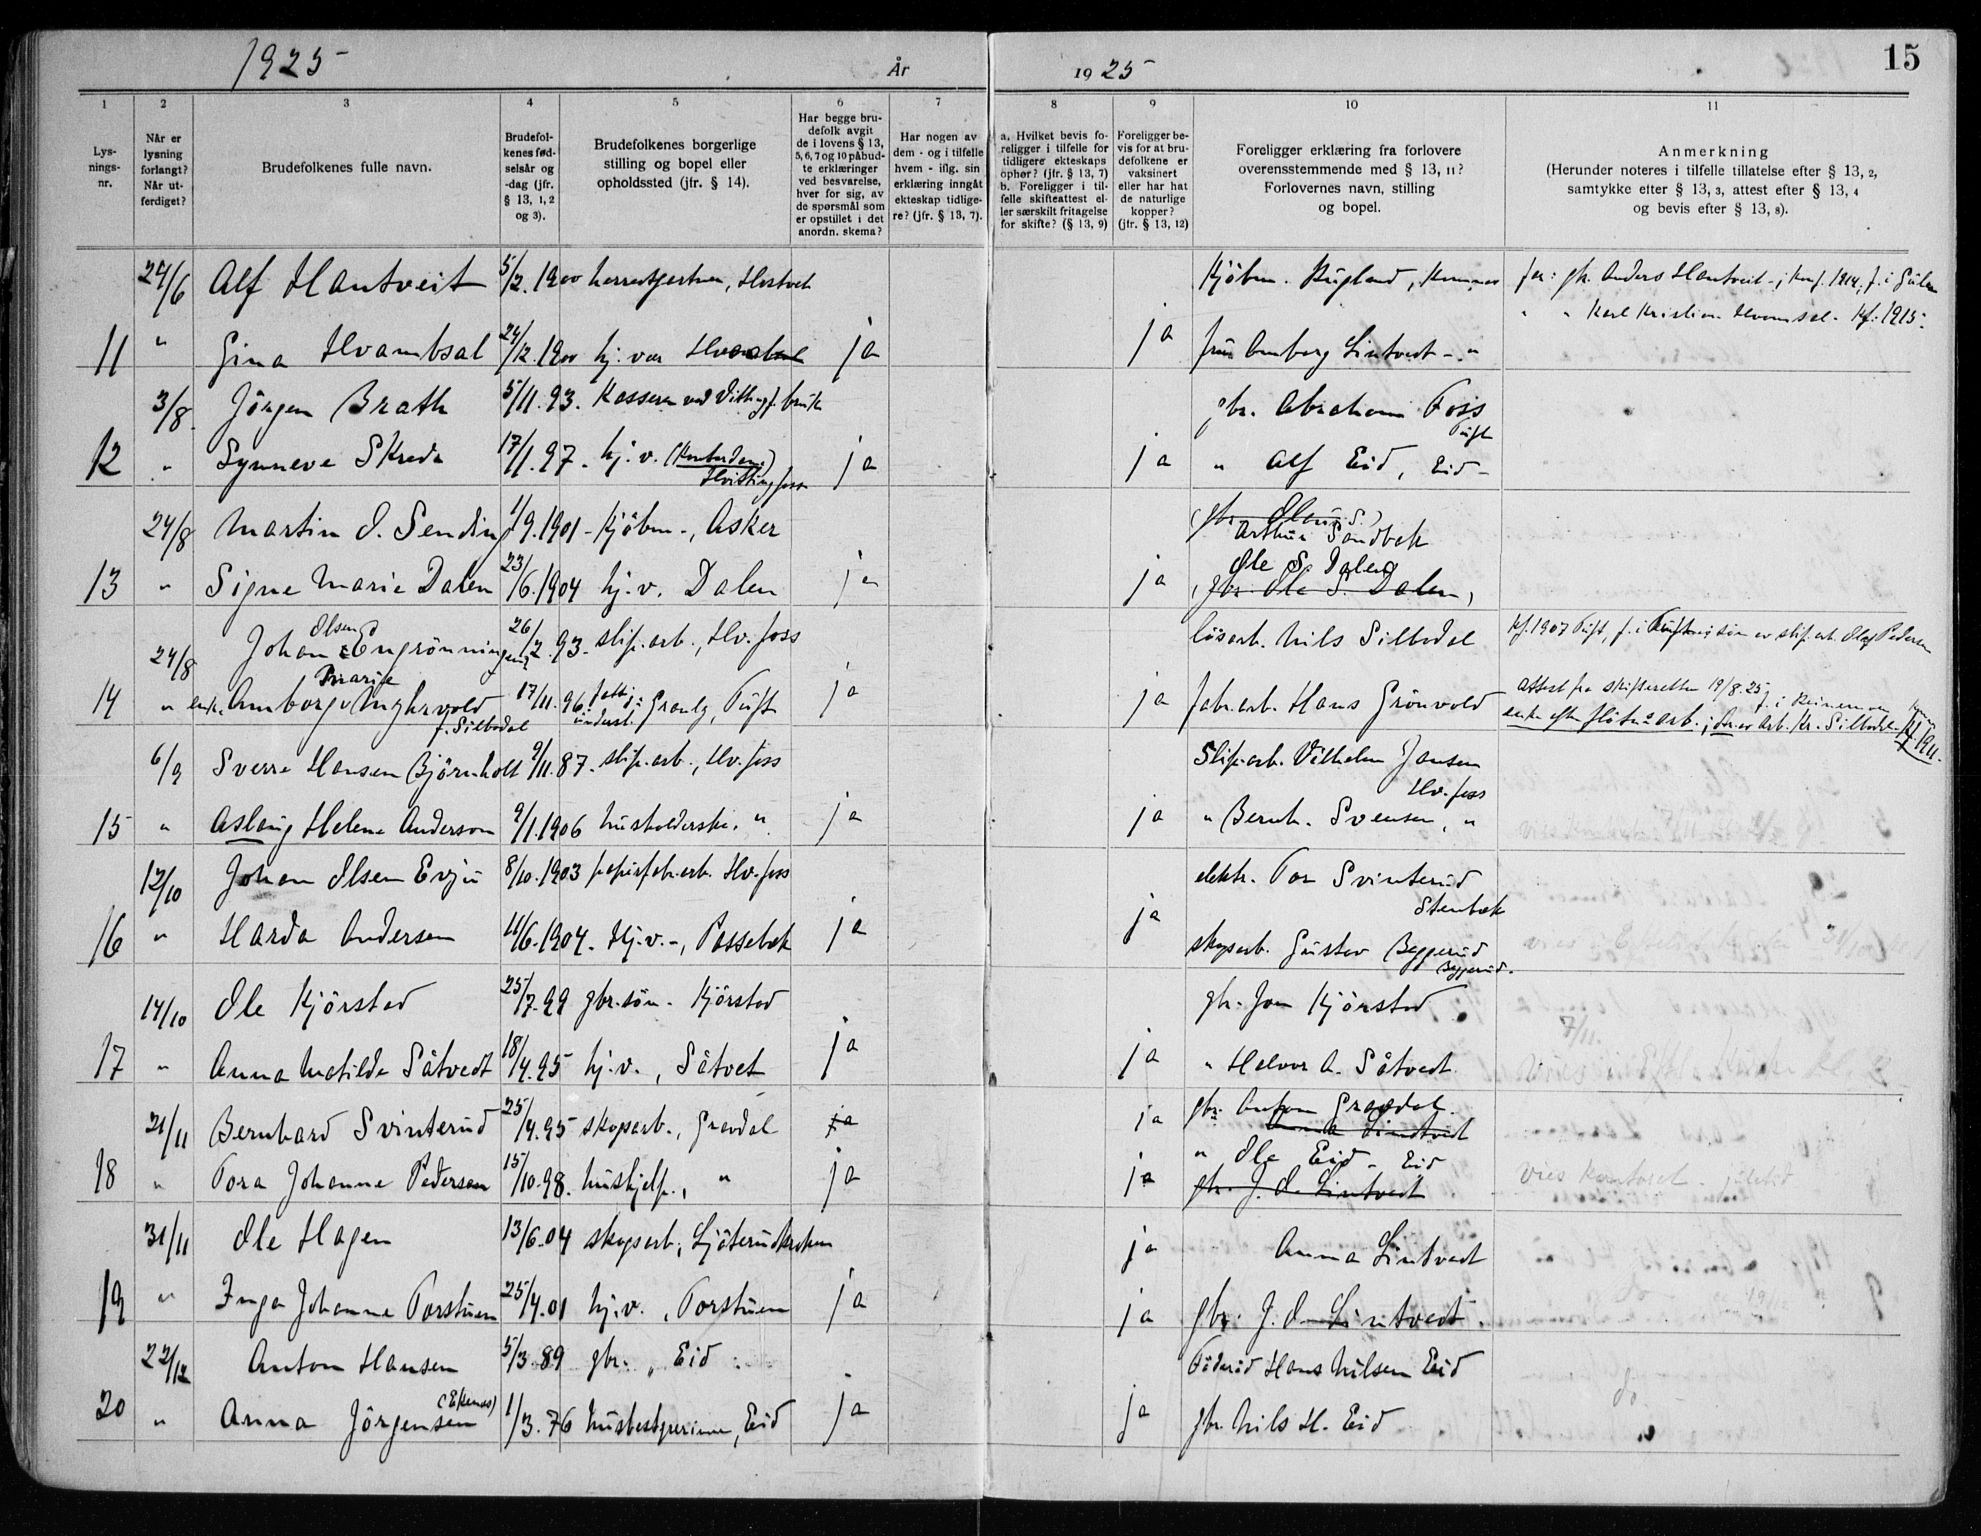 1925
År
1925
15
1
2
3
4
5
6
7
8
9
10
11
Lys-
nings-
nr.
Når er
lysning
forlangt?
Når ut-
ferdiget?
Brudefolkenes fulle navn.
Brudefol-
kenes fød-
selsår og
-dag (jfr.
§ 13, 1, 2
og 3).
Brudefolkenes borgerlige
stilling og bopel eller
opholdssted (jfr. § 14).
Har begge bru-
defolk avgit
de i lovens § 13,
5, 6, 7 og 10 påbud-
te erklæringer
ved besvarelse,
hver for sig, av
de spørsmål som
er opstillet i det
anordn. skema?
Har nogen av
dem - og i tilfelle
hvem - iflg. sin
erklæring inngåt
ekteskap tidlige-
re? (jfr. § 13, 7).
a. Hvilket bevis fo-
religger i tilfelle for
tidligere ekteskaps
ophør? (jfr. § 13, 7)
b. Foreligger i til-
felle skifteattest el-
ler særskilt fritagelse
for skifte? (§ 13, 9)
Foreligger be-
vis for at bru-
defolkene er
vaksinert
eller har hat
de naturlige
kopper?
(jfr. § 13, 12)
Foreligger erklæring fra forlovere
overensstemmende med § 13, 11?
Forlovernes navn, stilling
og bopel.
Anmerkning
(Herunder noteres i tilfelle tillatelse efter § 13, 2,
samtykke efter § 13, 3, attest efter § 13, 4
og bevis efter § 13, 8).
24/6 Alf Hantveit 5/2. 1900 Kjöbm. Rugland, far: gbr. Anders Hantveit - Konf. 1914, f. i
" " Karl Kristian - Kf. 1915.
11 " Gina Hvambsal 24/12. 1900 hj. vær ja ja frue Amborg Lintvedt - "
3/8. Jörgen Brath 5/11. 93. Kasserer ved gbr. Abraham Foss
Tuft
12 " Synneve Skrede 17/1. 97. hj. v. ja ja " Alf Eid, Eid -
Hvittingfoss
24/8 Martin O. Sending 1/9. 1901 - Kjöbm -, Asker (gbr. Olaus S.)
Arthur Sandbæk
Ole S. Dalen
13 " Signe Marie Dalen 23/6. 1904 hj. v. Dalen ja ja (gbr. Ole S. Dalen)
Olsen
24/8 Johan Engrønningen 26/2. 93. slip. arb., Hv. foss lösarb. Nils Silbodal Kf. 1907 Tuft, f. i søn av slip. arb. Olaf Pedersen
Marie
Attest fra skifteretten 19/8. 25
14 " enke Amborg Myhrvold 17/11. 96 Granly, Tuft ja ja fabr. arb. Hans Grönvold enke efter arb.; dr. av arb. Kr. Silbodal Kf. 1911.
f. Silbodal
6/9 Sverre Hansen Björnholt 9/11. 87. slip. arb., Hv. foss Slip. arb. Vilhelm Jansen
Hv. foss
15 " Aslaug Helene Anderson 9/1. 1906 husholderske. " ja ja " Bernh. Svensen, "
12/10 Johan Olsen Evju 8/10. 1903 papirfabr. arb. Hv. foss elektr. Tor Svinterud
Stenbæk
16 " Harda Andersen 11/6. 1904. Hj. v. -, Passebæk ja ja skogsarb. Gustav Beggerud
Beggerud.
14/10 Ole Kjörstad 25/7. 99 gbr. sön - Kjörstad gbr. Jon Kjörstad
7/11.
17 " Anna Matilde Såtvedt 18/4. 95 hj. v., Såtvet ja ja " Halvor A. Såtvedt.
21/11 Bernhard Svinterud 25/4. 95 skogsarb., Gravdal ja ja gbr. Anton Gravdal.
Anna Lintvedt
" Ole Eid - Eid
18 " Tora Johanne Pedersen 15/10. 98. hushjelp., " ja ja gbr. J. O. Lintvedt
31/11 Ole Hagen 13/6. 04 skogsarb, ja Anna Lintvedt
19 " Inga Johanne Torstuen 25/4. 01 hj. v., Torstuen ja ja gbr. J. O. Lintvedt.
22/12 Anton Hansen 5/3. 89 gbr. " Eid Föderåd Hans Nilsen Eid
(Ekenes)
20 " Anna Jörgensen 1/3. 76 husbestyrerinne, Eid ja ja gbr. Nils H. Eid